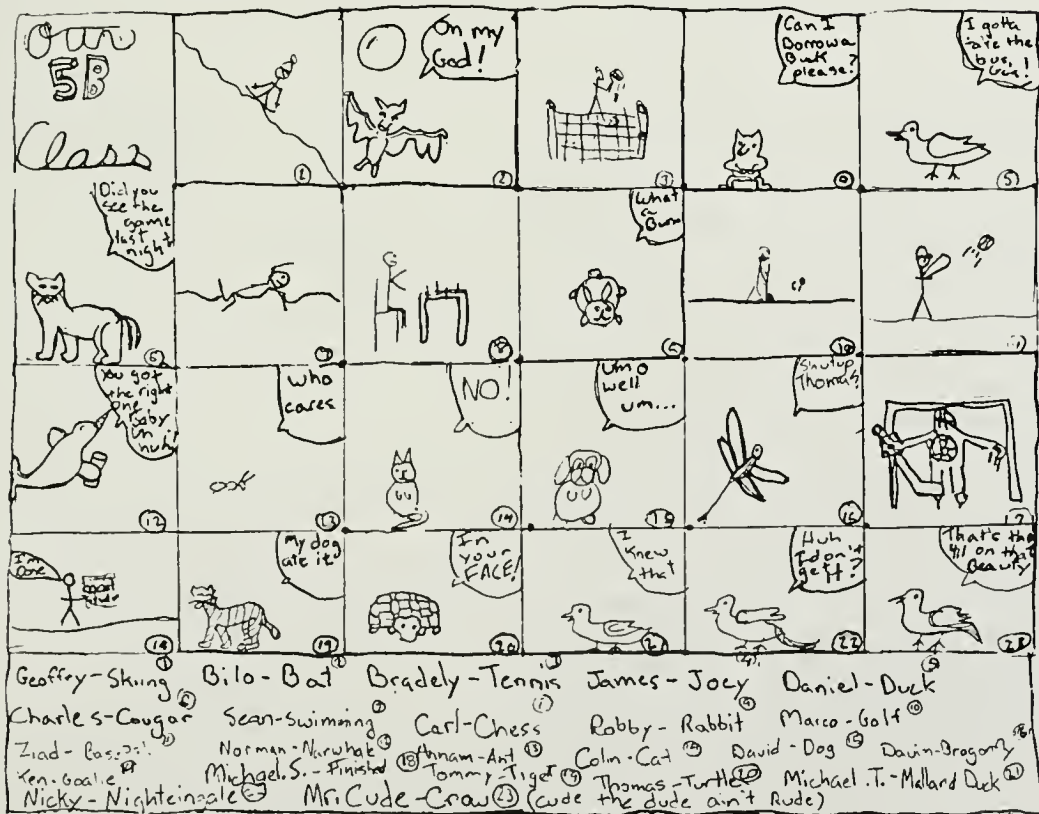 Our
5B
Class
1
Oh my
God!
2
3
Can I
Borrow a
Buck
please?
4
I gotta
take the
bus,
Gus!
5
Did you
see the
game
last
night
6
7
8
What
a
Bum
9
10
11
You got
the right
one
Baby
Uh
huh!
12
who
cares
13
NO!
14
Um
well
um...
15
Shutup
Thomas!
16
17
I'm
Done
18
My dog
ate it!
19
In
your
FACE!
20
I
knew
that
21
Huh
I don't
get it?
22
That's the
411 on that
Beauty
23
Geoffrey-Skiing 1 Bilo-Bat 2 Bradely-Tennis 3 James-Joey 4 Daniel-Duck 5
Charles-Cougar 6 Sean-Swimming 7 Carl-Chess Robby-Rabbit 9 Marco-Golf 10
Ziad- 11 Norman-Narwhale 12 Annam-Ant 13 Colin-Cat 14 David-Dog 15 16
Ken-Goalie 17 Michael.S.-Finished 18 Tommy-Tiger 19 Thomas-Turtle 20 Michael.T.-Mallard Duck 21
Nicky-Nighteingale 22 Mr. Cude-Crow 23 (cude the dude ain't Rude)